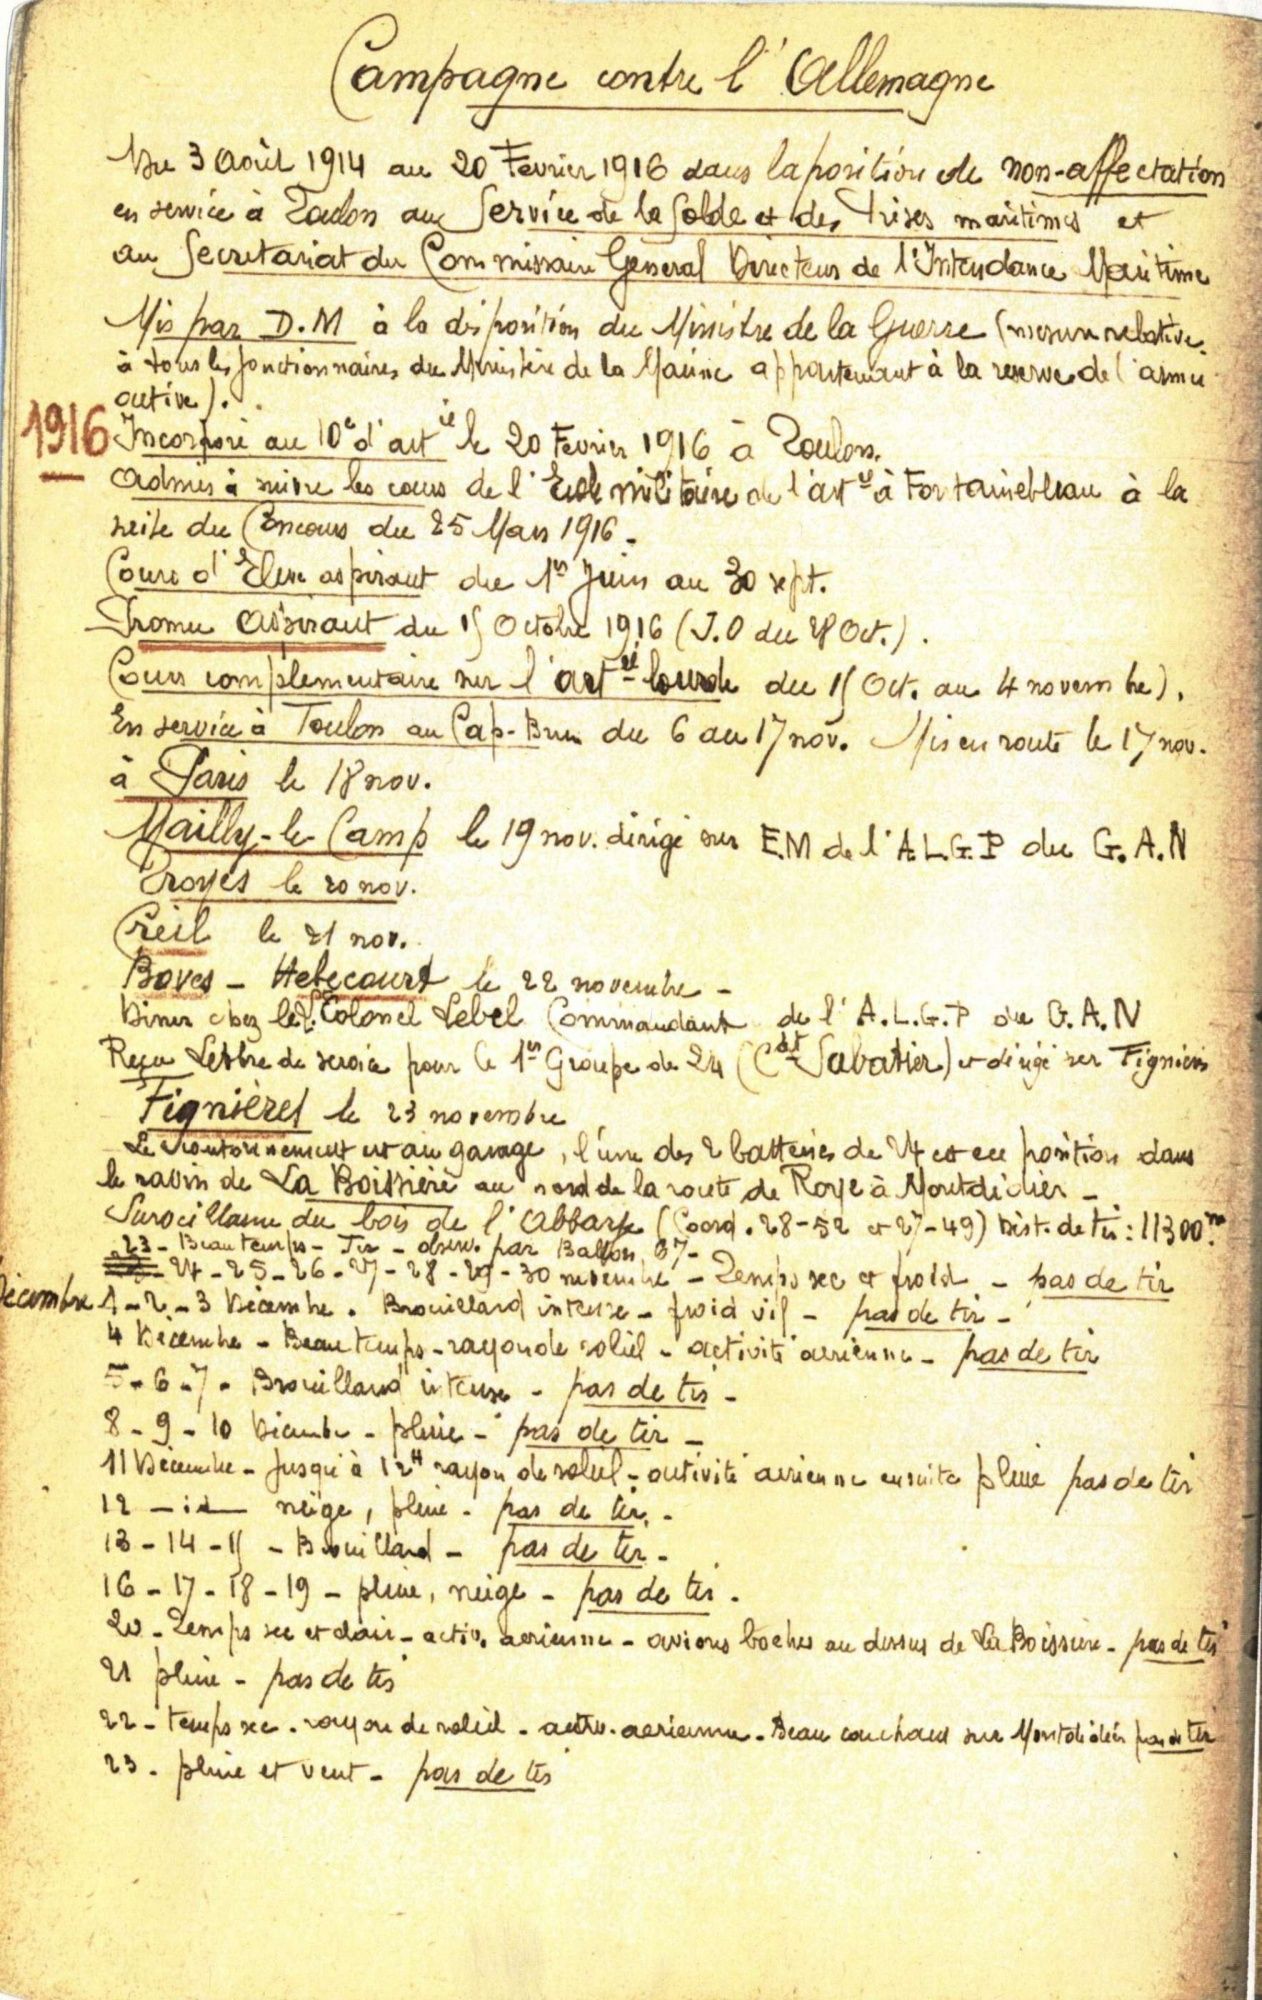 Campagne contre l'Allemagne
Du 3 Août 1914 au 20 Fevrier 1916 dans la position de non-affectation
en service à Toulon aux Service de la Solde et des Prises maritimes et
au Secretariat du Commissaire General Directeur de l'Intendance Maritime
Mis par D.M à la disposition du Ministre de la Guerre (mesure relative
à tous les fonctionnaires du Ministère de la Marine appartenant à la reserve de l'armée
active).
1916 Incorporé au 10e d'artie le 20 Fevrier 1916 à Toulon.
Admis à suivre les cours de l'Ecole militaire de l'artie à Fontainebleau à la
suite du Concours du 25 Mars 1916.
Cours d'Eleve aspirant du 1er Juin au 30 sept.
Promu Aspirant du 15 Octobre 1916 (J.O du 28 Oct.).
Cours complementaire sur l'artie lourde du 15 Oct. au 4 novembre).
En service à Toulon au Cap-Brun du 6 au 17 nov. Mis en route le 17 nov.
à Paris le 18 nov.
Mailly-le-Camp le 19 nov. dirigé sur E.M de l'A.L.G.P du G.A.N
Troyes le 20 nov.
Creil le 21 nov.
Boves - Hebecourt le 22 novembre -
Diner chez le Lt. Colonel Lebel Commandant de l'A.L.G.P du G.A.N
Reçu Lettre de service pour le 1er Groupe de 24 (Cdt Sabatier) et dirigé sur Fignières
Fignières le 23 novembre
Le cantonnement est au garage, l'une des 2 batteries de 24 est en position dans
le ravin de La Boissière au nord de la route de Roye à Montdidier -
Surveillance du bois de l'Abbaye (Coord. 28-52 et 27-49) Dist. de tir : 11300m.
23 - Beau temps - Tir - observ. par Ballon 37 -
24 - 25 - 26 - 27 - 28 - 29 - 30 novembre - Temps sec et froid - pas de tir
Décembre 1 - 2 - 3 Décembre. Brouillard intense - froid vif - pas de tir -
4 Décembre - Beau temps - rayon de soleil - activité aerienne - pas de tir
5 - 6 - 7 - Brouillard intense - pas de tir -
8 - 9 - 10 Décembre - pluie - pas de tir -
11 Décembre - Jusqu'à 12H rayon de soleil - activité aerienne ensuite pluie pas de tir
12 - id - neige, pluie - pas de tir. -
13 - 14 - 15 - Brouillard - pas de tir -
16 - 17 - 18 - 19 - pluie, neige - pas de tir.
20 - Temps sec et clair - activ. aerienne - avions boches au dessus de La Boissière - pas de tir
21 pluie - pas de tir
22 - temps sec. rayon de soleil - activ. aerienne - Beau couchant sur Montdidier pas de tir
23 - pluie et vent - pas de tir